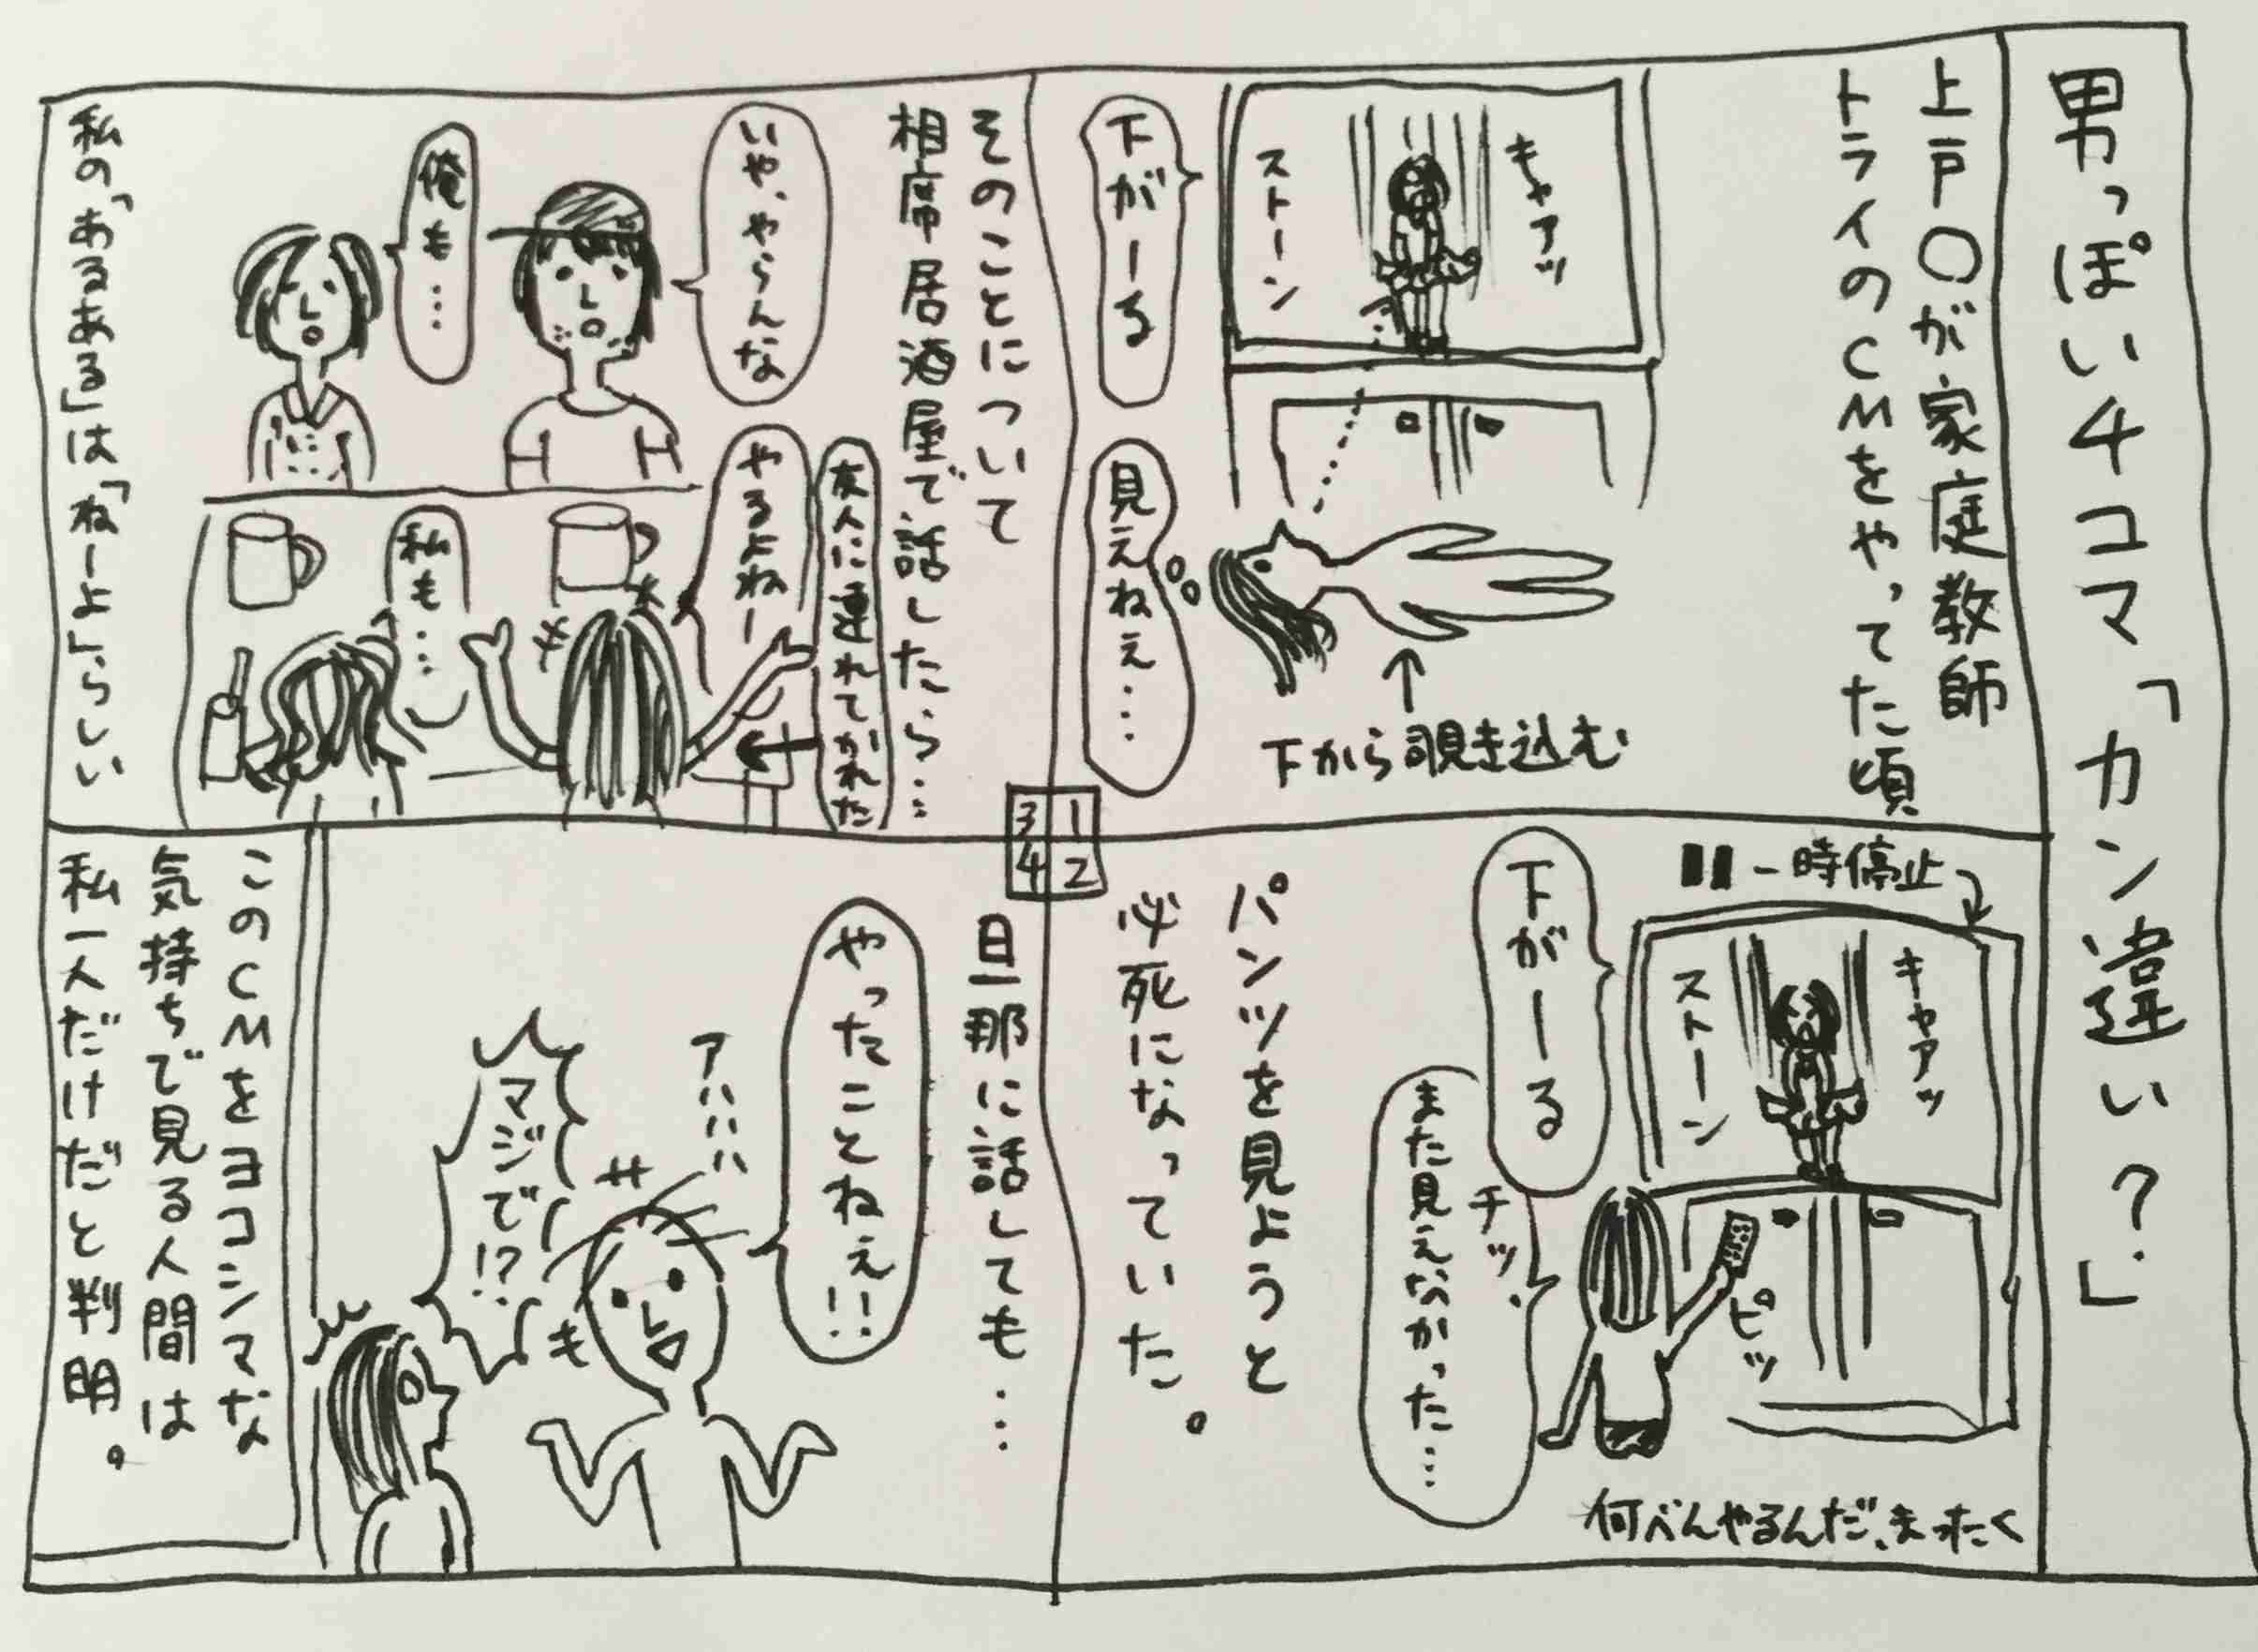 男っぽい4コマ「カン違い?」
上戸〇が家庭教師
トライのCMをやってた頃
キャアッ
ストーン
下がーる
見えねえ…
下から覗き込む
1
2
3
4
一時停止
キャアッ
ストーン
下がーる
ピッ
チッ、
また見えなかった…
何べんやるんだ、まったく
パンツを見ようと
必死になっていた。
そのことについて
相席居酒屋で話したら…
いや、やらんな
俺も…
友人に連れてかれた
やるよねー
私も…
私の「あるある」は「ねーよ」らしい
旦那に話しても…
やったことねえ!!
アハハハ
マジで!?
このCMをヨコシマな
気持ちで見る人間は
私一人だけだと判明。